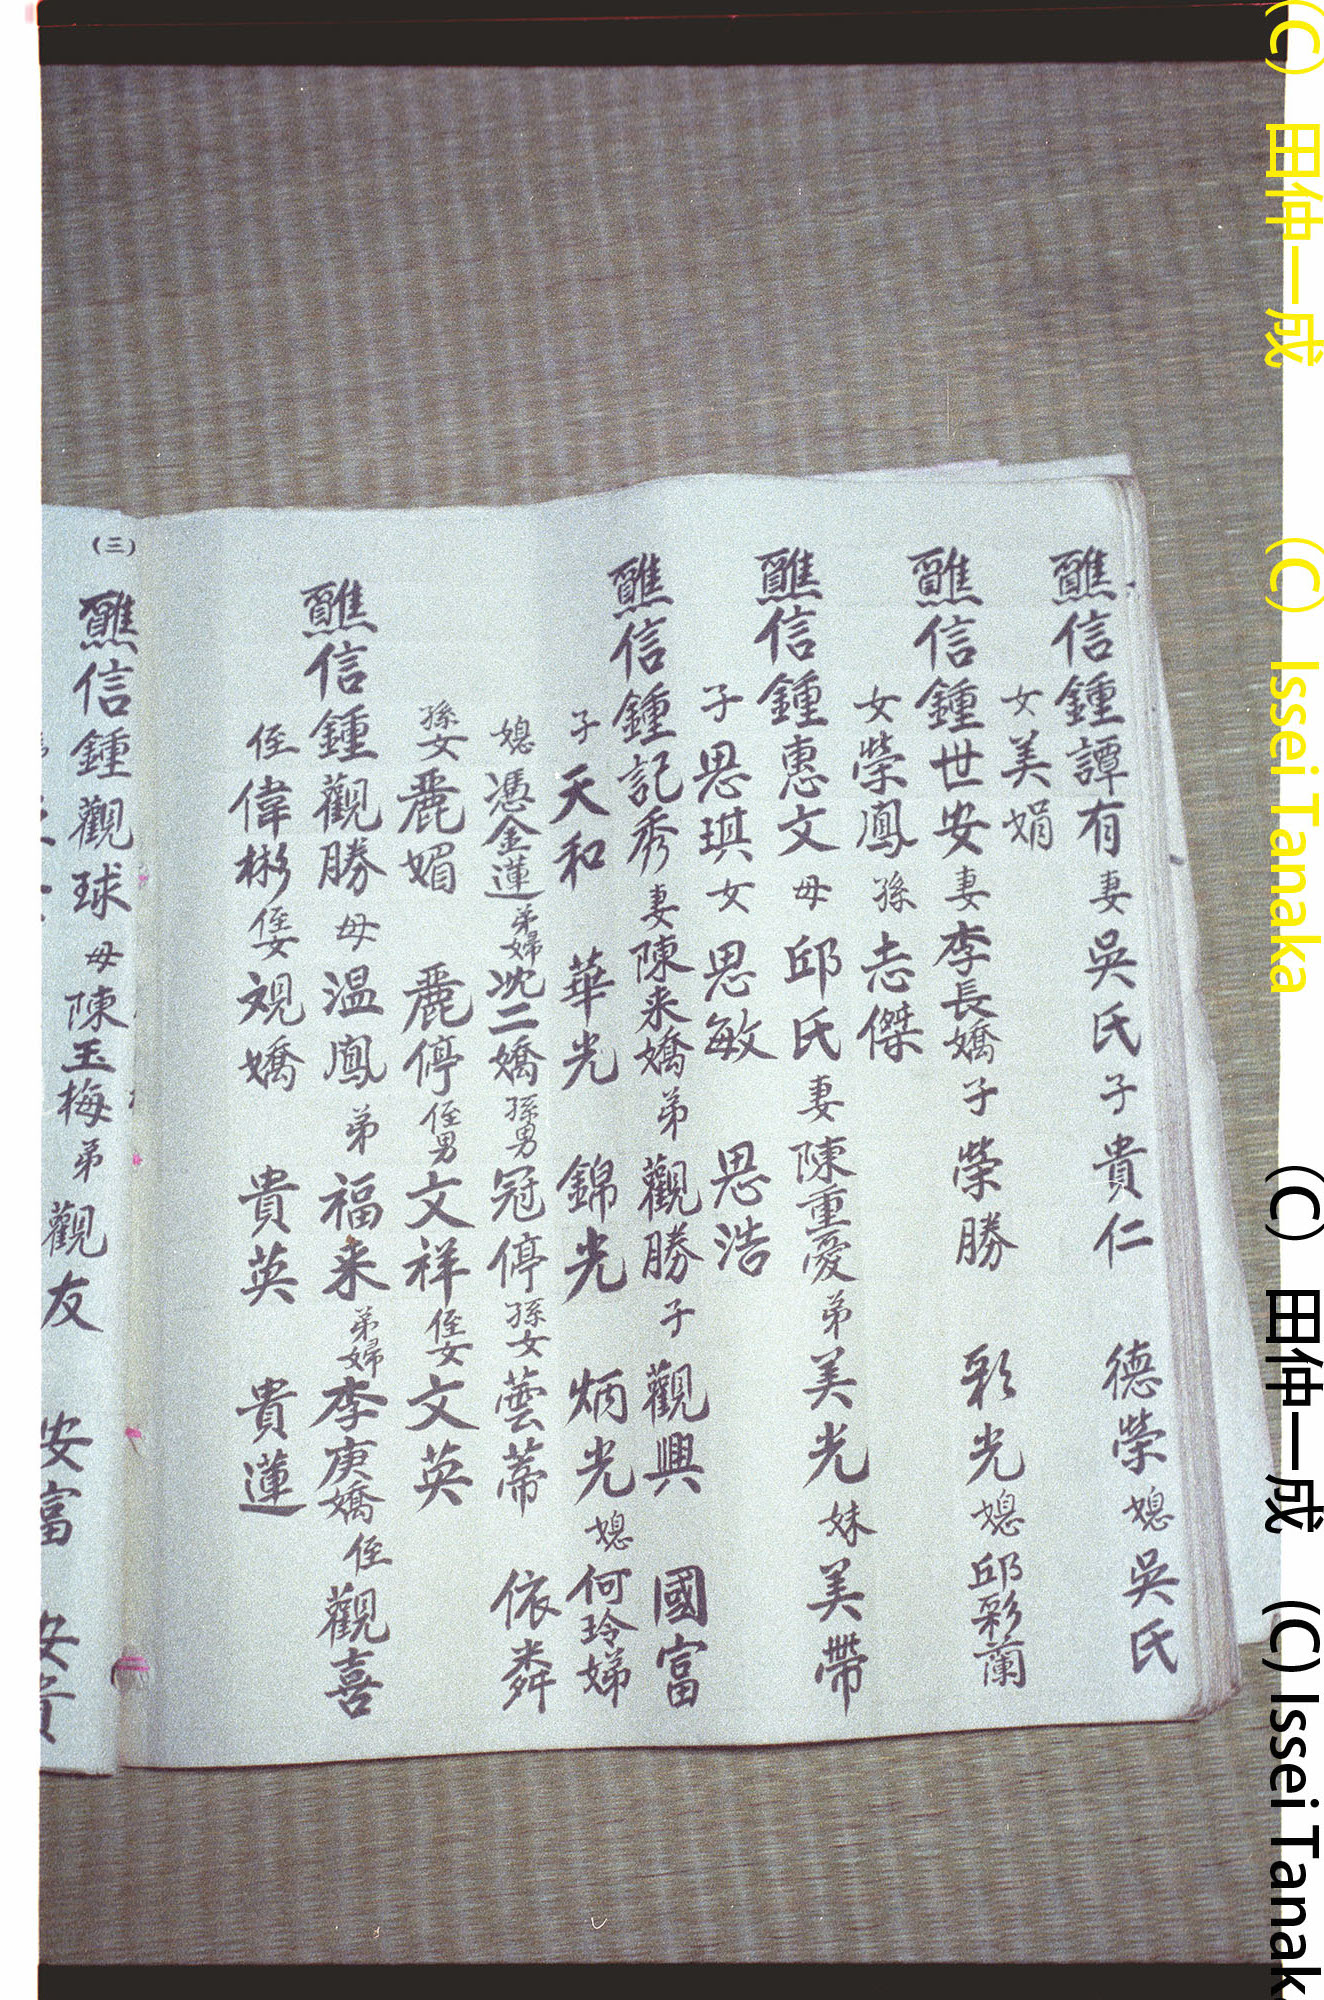 醮信鍾譚有 妻 吳氏 子 貴仁 德榮 媳 吳氏
女 美娟
醮信鍾世安 妻 李長嬌 子 榮勝 彩光 媳 邱彩蘭
女 榮鳳 孫 志傑
醮信鍾惠文 母 邱氏 妻 陳重愛 弟 美光 妹 美帶
子 思琪 女 思敏 思浩
醮信鍾記秀 妻 陳来嬌 弟 觀勝 子 觀興 國富
子 天和 華光 錦光 炳光 媳 何玲娣
媳 馮金蓮 弟婦 沈二嬌 孫男 冠停 孫女 蕓蒂 依粦
孫女 麗媚 麗停 侄男 文祥 侄女 文英
醮信鍾觀勝 母 温鳳 弟 福来 弟婦 李庚嬌 侄 觀喜
侄 偉彬 侄女 观嬌 貴英 貴蓮
(三)
醮信鍾觀球 母 陳玉梅 弟 觀友 安富 安貴
(C) 田仲一成 (C) Issei Tanaka (C) 田仲一成 (C) Issei Tanak